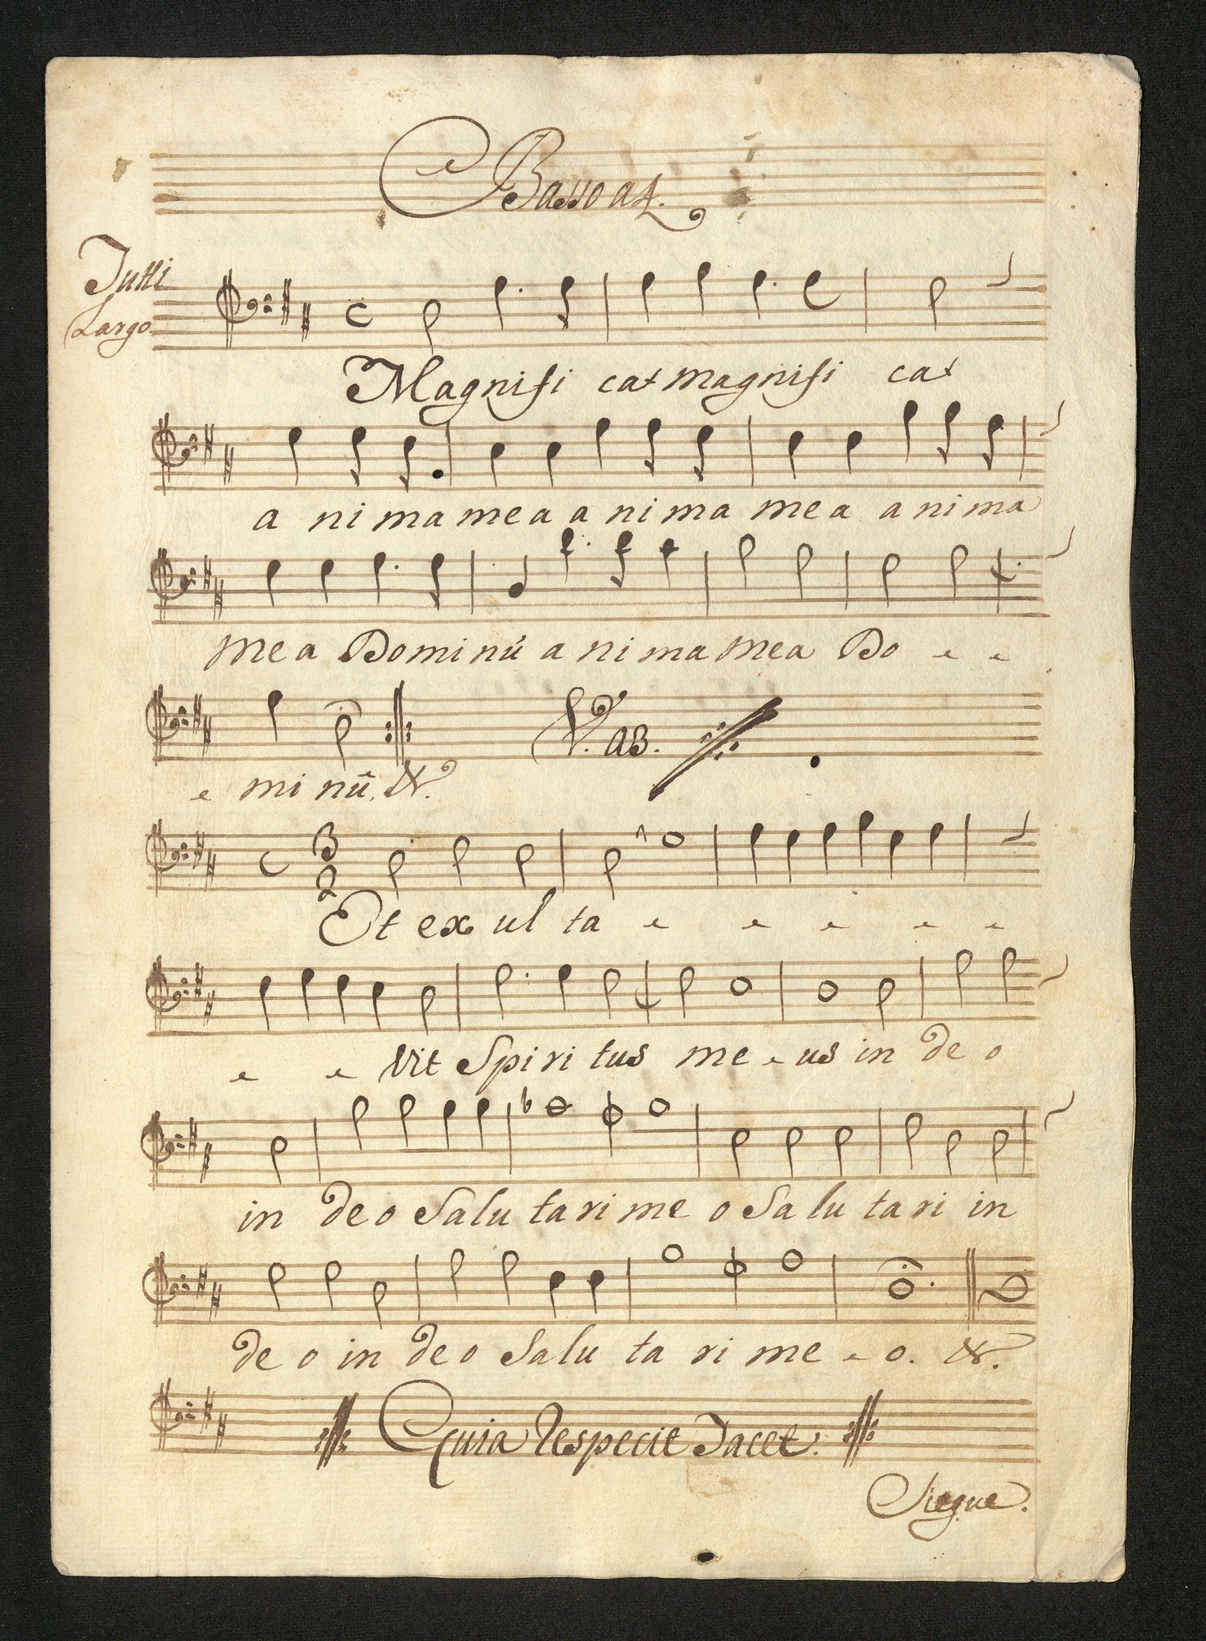 Basso a 4.
Tutti
Largo.
Magnifi cat magnifi cat
a ni ma mea a ni ma mea a ni ma
mea Dominũ a ni ma mea Do
mi nũ. &.
V. aB.
3
2
Et ex ul ta
vit Spiri tus me us in de o
in de o Salu ta ri me o Sa lu ta ri in
de o in de o Salu ta ri me o. &.
Quia Respecit Tacet.
Siegue.